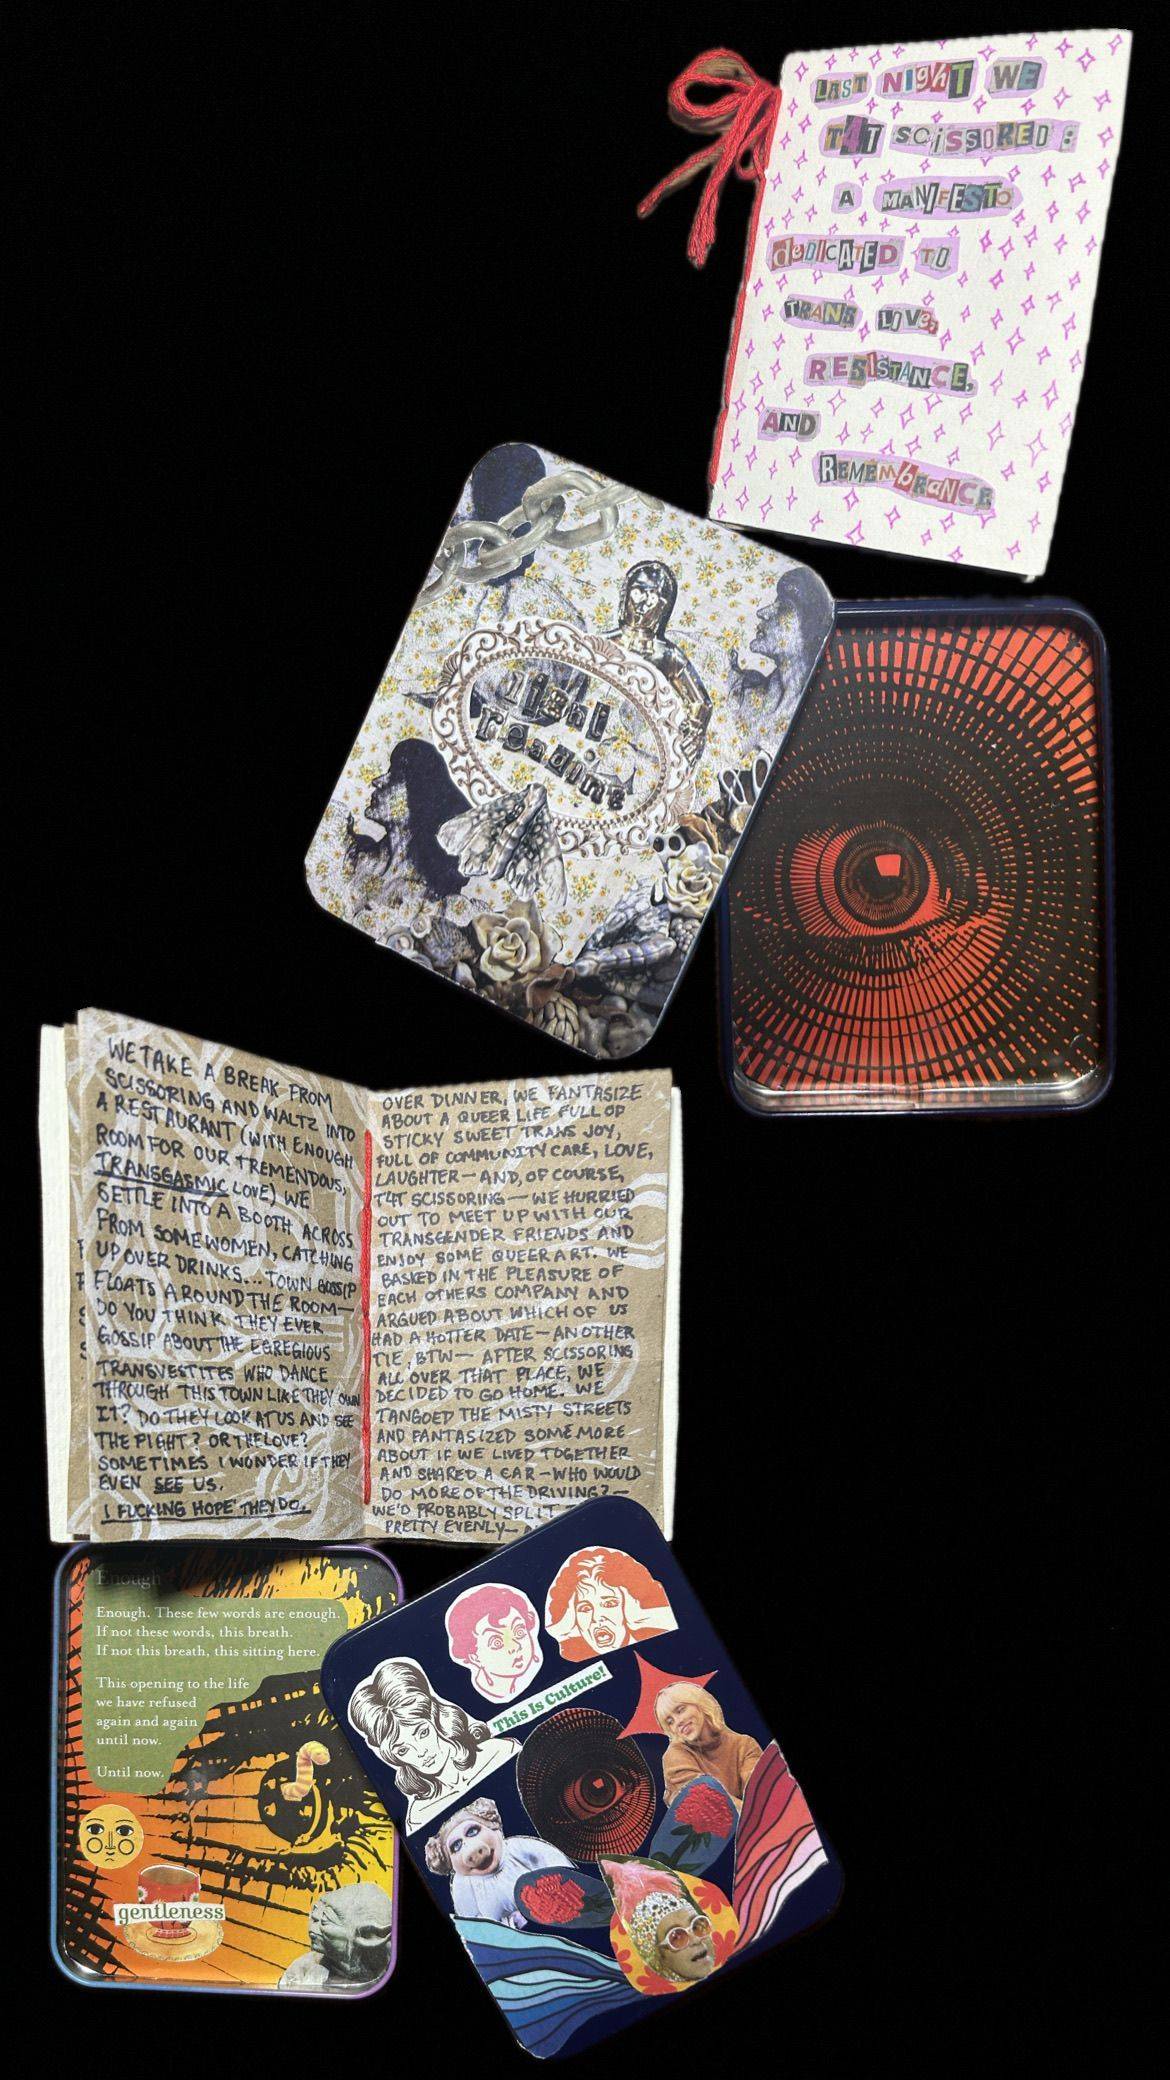 LAST NIGHT WE
T4T SCISSORED:
A MANIFESTO
DEDICATED TO
TRANS LOVE,
RESISTANCE,
AND
REMEMBRANCE
night
reading
WE TAKE A BREAK FROM
SCISSORING AND WALTZ INTO
A RESTAURANT (WITH ENOUGH
ROOM FOR OUR TREMENDOUS,
TRANSGASMIC LOVE) WE
SETTLE INTO A BOOTH ACROSS
FROM SOME WOMEN, CATCHING
UP OVER DRINKS... TOWN GOSSIP
FLOATS AROUND THE ROOM—
DO YOU THINK THEY EVER
GOSSIP ABOUT THE EGREGIOUS
TRANSVESTITES WHO DANCE
THROUGH THIS TOWN LIKE THEY OWN
IT? DO THEY LOOK AT US AND SEE
THE FIGHT? OR THE LOVE?
SOMETIMES I WONDER IF THEY
EVEN SEE US.
I FUCKING HOPE THEY DO.
OVER DINNER, WE FANTASIZE
ABOUT A QUEER LIFE FULL OF
STICKY SWEET TRANS JOY,
FULL OF COMMUNITY CARE, LOVE,
LAUGHTER—AND, OF COURSE,
T4T SCISSORING—WE HURRIED
OUT TO MEET UP WITH OUR
TRANSGENDER FRIENDS AND
ENJOY SOME QUEER ART. WE
BASKED IN THE PLEASURE OF
EACH OTHERS COMPANY AND
ARGUED ABOUT WHICH OF US
HAD A HOTTER DATE—ANOTHER
TIE, BTW—AFTER SCISSORING
ALL OVER THAT PLACE, WE
DECIDED TO GO HOME. WE
TANGOED THE MISTY STREETS
AND FANTASIZED SOME MORE
ABOUT IF WE LIVED TOGETHER
AND SHARED A CAR—WHO WOULD
DO MORE OF THE DRIVING?—
WE'D PROBABLY SPLIT
PRETTY EVENLY—
Enough
Enough. These few words are enough.
If not these words, this breath.
If not this breath, this sitting here.
This opening to the life
we have refused
again and again
until now.
Until now.
gentleness
This Is Culture!